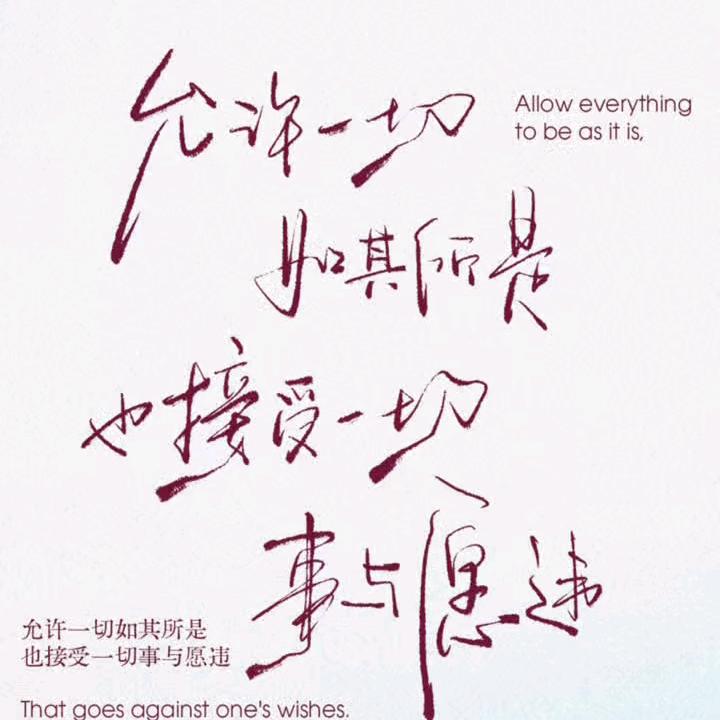 允许一切
Allow everything
to be as it is,
如其所是
也接受一切
事与愿违
允许一切如其所是
也接受一切事与愿违
That goes against one's wishes.